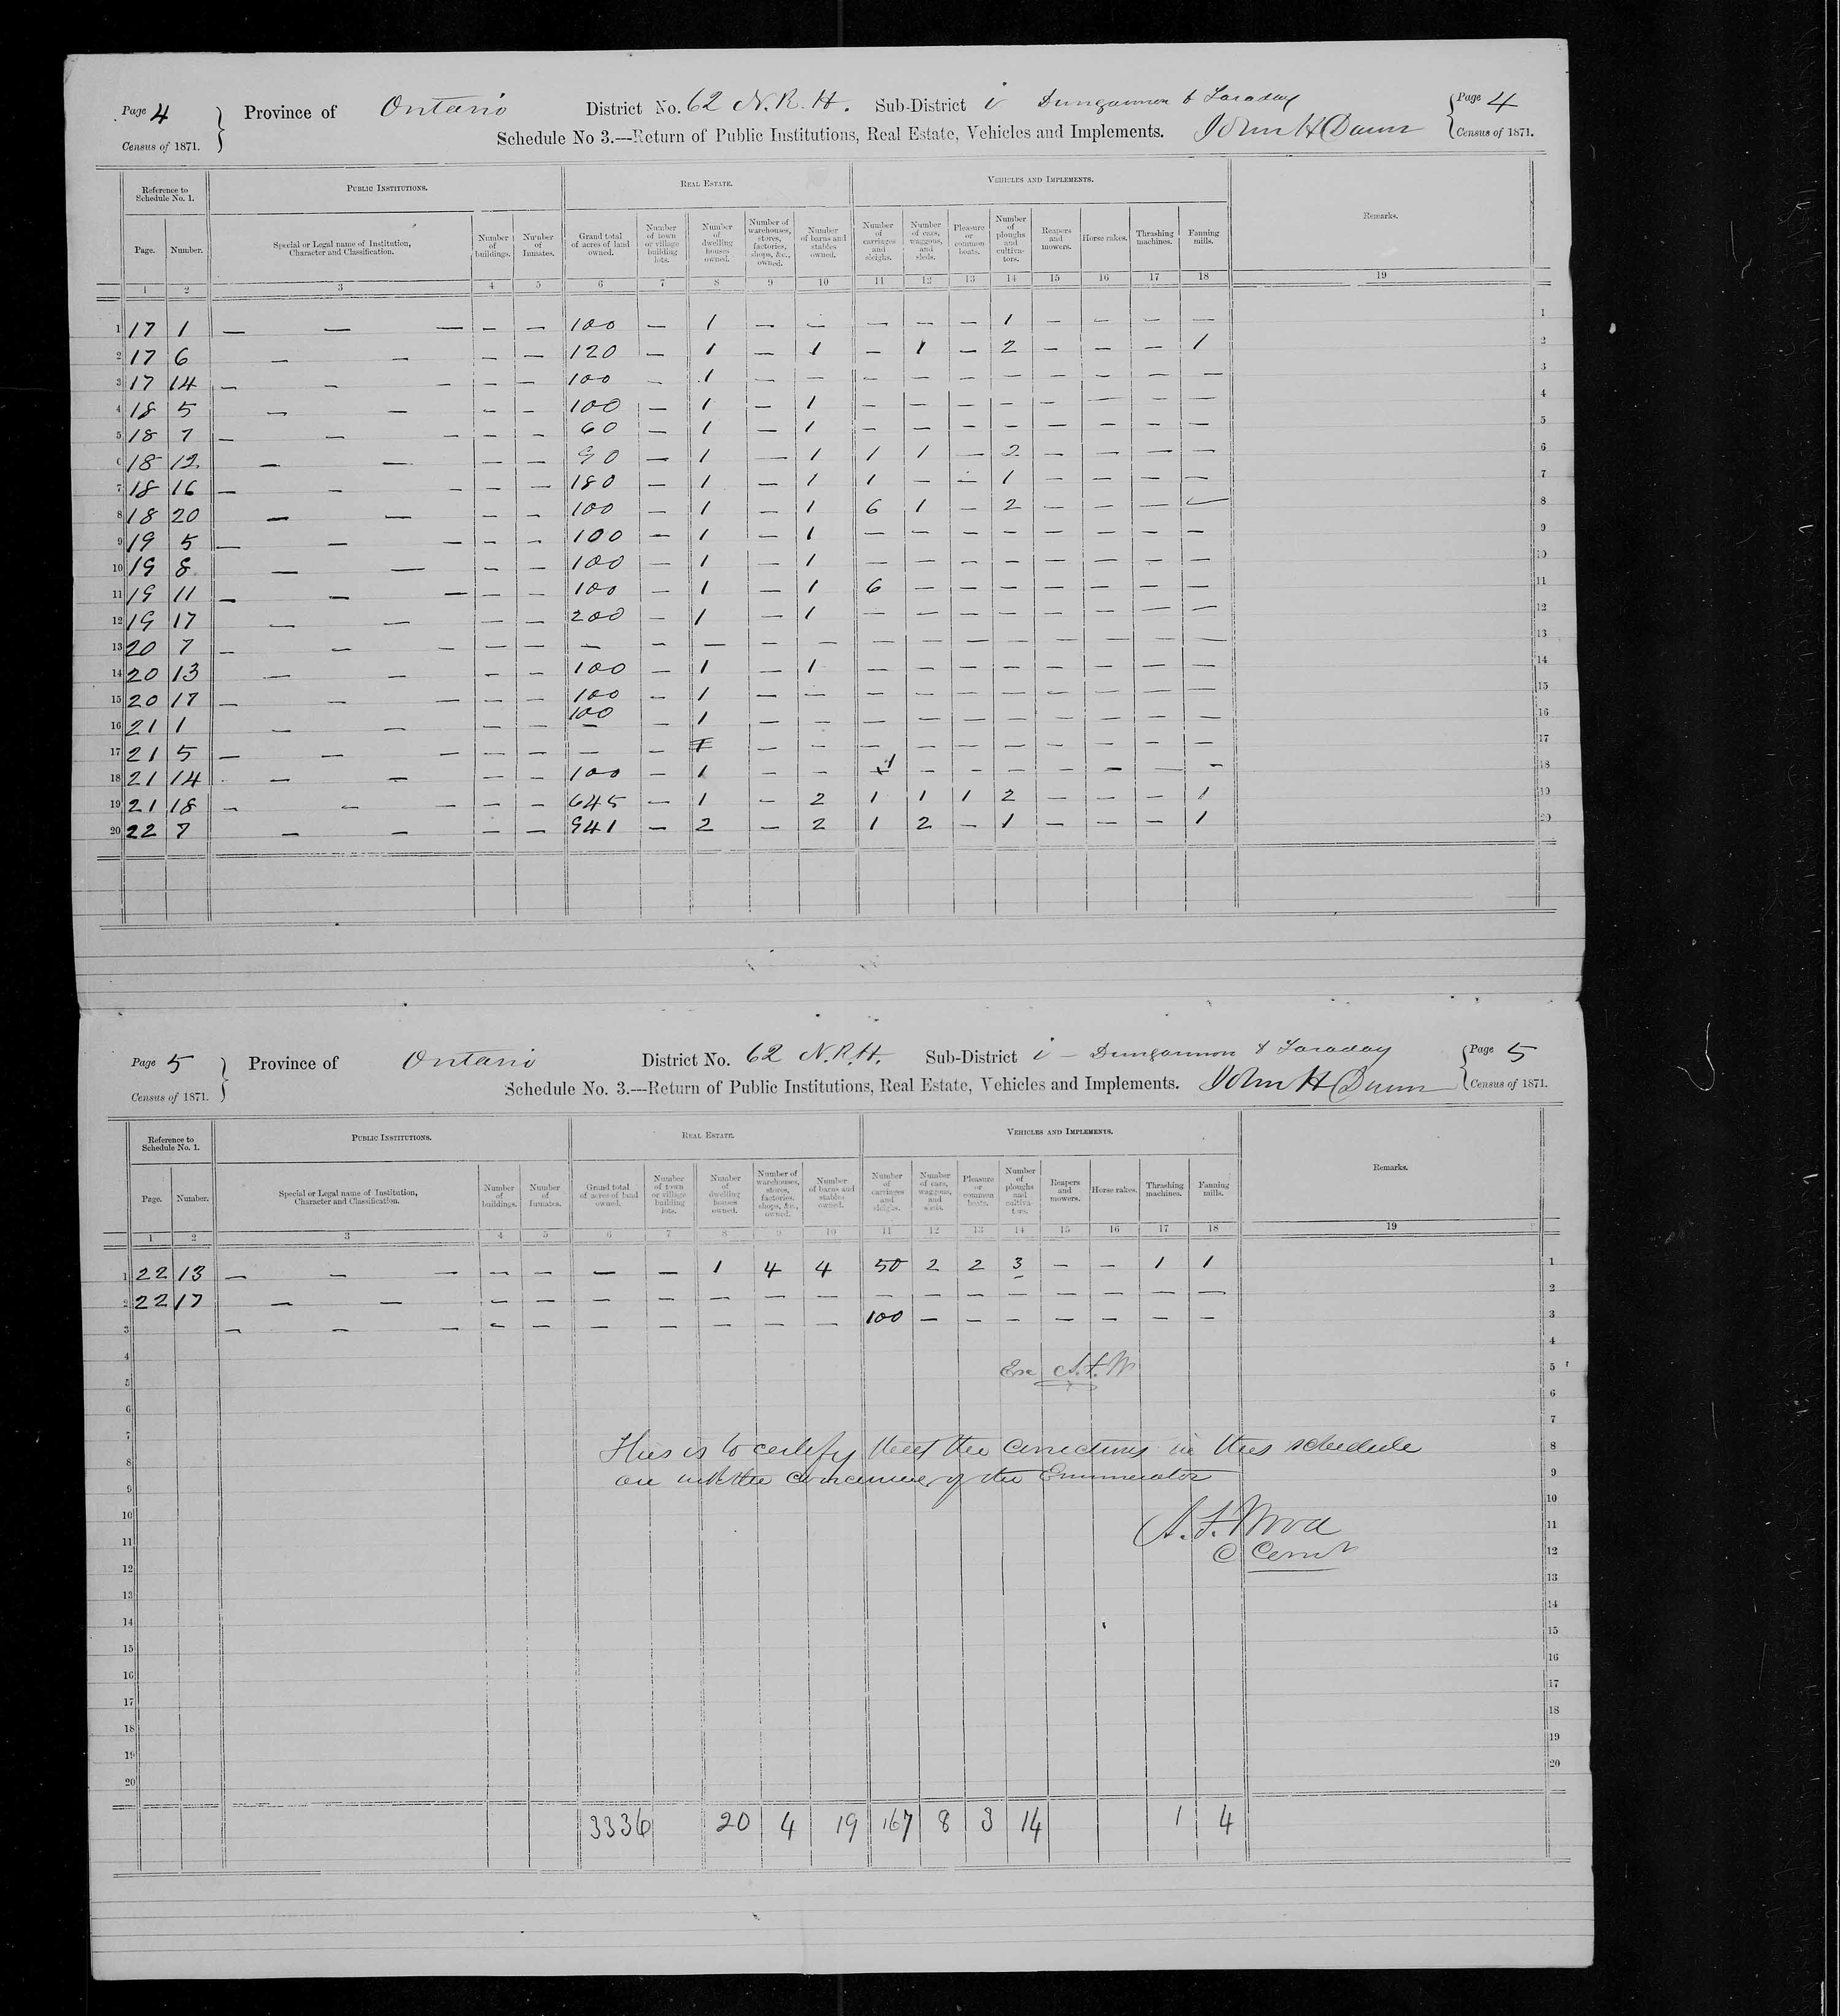 Page 4 Province of Ontario District No. 62 N. R. H. Sub-District i Dungannon & Faraday Page 4
Census of 1871. Schedule No 3.—Return of Public Institutions, Real Estate, Vehicles and Implements. John H Dunn Census of 1871.
Reference to Schedule No. 1. PUBLIC INSTITUTIONS. REAL ESTATE. VEHICLES AND IMPLEMENTS. Remarks.
Page. Number. Special or Legal name of Institution, Character and Classification. Number of buildings. Number of Inmates. Grand total of acres of land owned. Number of town or village building lots. Number of dwelling houses owned. Number of warehouses, stores, factories, shops, &c., owned. Number of barns and stables owned. Number of carriages and sleighs. Number of cars, waggons, and sleds. Pleasure or common boats. Number of ploughs and cultivators. Reapers and mowers. Horse rakes. Thrashing machines. Fanning mills.
1 2 3 4 5 6 7 8 9 10 11 12 13 14 15 16 17 18 19
1 17 1 — — — — — 100 — 1 — — — — — 1 — — — — 1
2 17 6 — — — — 120 — 1 — 1 — 1 — 2 — — — 1 2
3 17 14 — — — — — 100 — 1 — — — — — — — — — — 3
4 18 5 — — — — 100 — 1 — 1 — — — — — — — — 4
5 18 7 — — — — — 60 — 1 — 1 — — — — — — — — 5
6 18 12 — — — — 90 — 1 — 1 1 1 — 2 — — — — 6
7 18 16 — — — — — 180 — 1 — 1 1 — — 1 — — — — 7
8 18 20 — — — — 100 — 1 — 1 6 1 — 2 — — — — 8
9 19 5 — — — — — 100 — 1 — 1 — — — — — — — — 9
10 19 8 — — — — 100 — 1 — 1 — — — — — — — — 10
11 19 11 — — — — — 100 — 1 — 1 6 — — — — — — — 11
12 19 17 — — — — 200 — 1 — 1 — — — — — — — — 12
13 20 7 — — — — — — — — — — — — — — — — — — 13
14 20 13 — — — — 100 — 1 — 1 — — — — — — — — 14
15 20 17 — — — — — 100 — 1 — — — — — — — — — — 15
16 21 1 — — — — 100 — 1 — — — — — — — — — — 16
17 21 5 — — — — — — — 1 — — — — — — — — — — 17
18 21 14 — — — — 100 — 1 — — 1 — — — — — — — 18
19 21 18 — — — — — 645 — 1 — 2 1 1 1 2 — — — 1 19
20 22 7 — — — — 941 — 2 — 2 1 2 — 1 — — — 1 20
Page 5 Province of Ontario District No. 62 N.R.H. Sub-District i — Dungannon & Faraday Page 5
Census of 1871. Schedule No. 3.—Return of Public Institutions, Real Estate, Vehicles and Implements. John H Dunn Census of 1871.
Reference to Schedule No. 1. PUBLIC INSTITUTIONS. REAL ESTATE. VEHICLES AND IMPLEMENTS. Remarks.
Page. Number. Special or Legal name of Institution, Character and Classification. Number of buildings. Number of Inmates. Grand total of acres of land owned. Number of town or village building lots. Number of dwelling houses owned. Number of warehouses, stores, factories, shops, &c., owned. Number of barns and stables owned. Number of carriages and sleighs. Number of cars, waggons, and sleds. Pleasure or common boats. Number of ploughs and cultivators. Reapers and mowers. Horse rakes. Thrashing machines. Fanning mills.
1 2 3 4 5 6 7 8 9 10 11 12 13 14 15 16 17 18 19
1 22 13 — — — — — — — 1 4 4 50 2 2 3 — — 1 1 1
2 22 17 — — — — — — — — — — — — — — — — — 2
3 — — — — — — — — — — 100 — — — — — — — 3
4 4
5 A.F.W 5
6 6
7 7
8 This is to certify that the corrections in this schedule 8
9 are with the concurrence of the Enumerator 9
10 10
11 A. F. Wood 11
12 C Comr 12
13 13
14 14
15 15
16 16
17 17
18 18
19 19
20 20
3336 20 4 19 167 8 3 14 1 4